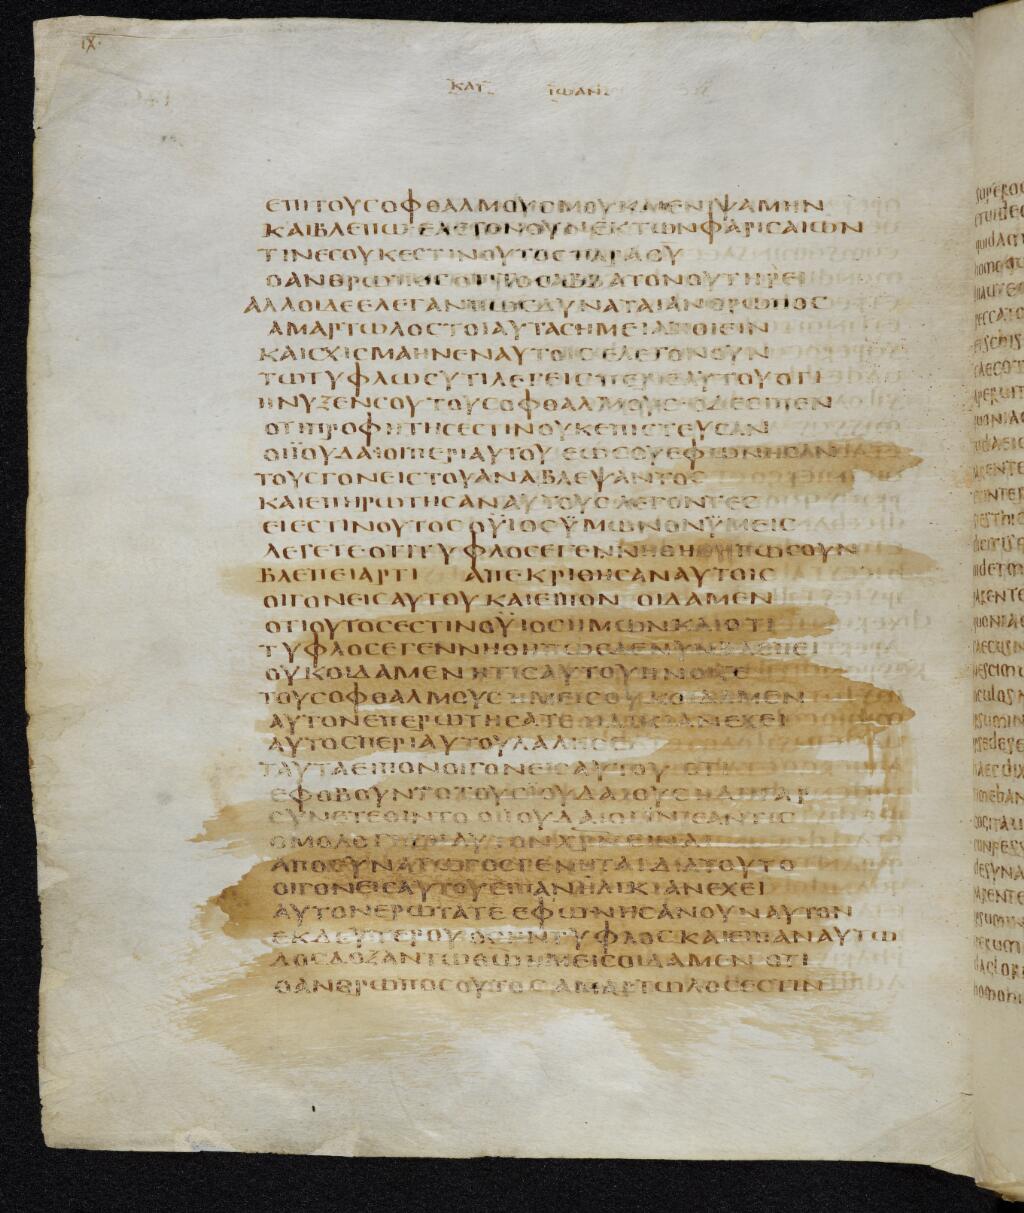 ΙΧ·
ΚΑΤ ΙΩΑΝ
ΕΠΙΤΟΥΣΟΦΘΑΛΜΟΥΣΜΟΥΚΑΙΕΝΙΨΑΜΗΝ
ΚΑΙΒΛΕΠΩ ΕΛΕΓΟΝΟΥΝΕΚΤΩΝΦΑΡΙΣΑΙΩΝ
ΤΙΝΕΣΟΥΚΕΣΤΙΝΟΥΤΟΣΠΑΡΑΘΥ
ΟΑΝΘΡΩΠΟΣΟΤΙΤΟΣΑΒΒΑΤΟΝΟΥΤΗΡΕΙ
ΑΛΛΟΙΔΕΕΛΕΓΑΝΠΩΣΔΥΝΑΤΑΙΑΝΘΡΩΠΟΣ
ΑΜΑΡΤΩΛΟΣΤΟΙΑΥΤΑΣΗΜΕΙΑΠΟΙΕΙΝ
ΚΑΙΣΧΙΣΜΑΗΝΕΝΑΥΤΟΙΣ ΕΛΕΓΟΝΟΥΝ
ΤΩΤΥΦΛΩΣΥΤΙΛΕΓΕΙΣΠΕΡΙΣΕΑΥΤΟΥΟΤΙ
ΗΝΥΞΕΝΣΟΥΤΟΥΣΟΦΘΑΛΜΟΥΣ·ΟΔΕΕΙΠΕΝ
ΟΤΙΠΡΟΦΗΤΗΣΕΣΤΙΝΟΥΚΕΠΙΣΤΕΥΣΑΝ
ΟΙΪΟΥΔΑΙΟΙΠΕΡΙΑΥΤΟΥ ΕΩΣΟΥΕΦΩΝΗΣΑΝ
ΤΟΥΣΓΟΝΕΙΣΤΟΥΑΝΑΒΛΕΨΑΝΤΟΣ
ΚΑΙΕΠΗΡΩΤΗΣΑΝΑΥΤΟΥΣ ΛΕΓΟΝΤΕΣ
ΕΙΕΣΤΙΝΟΥΤΟΣ ΟΫΙΟΣΫΜΩΝΟΝΫΜΕΙΣ
ΛΕΓΕΤΕΟΤΙΤΥΦΛΟΣΕΓΕΝΝΗΘΗ ΠΩΣΟΥΝ
ΒΛΕΠΕΙΑΡΤΙ ΑΠΕΚΡΙΘΗΣΑΝΑΥΤΟΙΣ
ΟΙΓΟΝΕΙΣΑΥΤΟΥ ΚΑΙΕΙΠΟΝ ΟΙΔΑΜΕΝ
ΟΤΙΟΥΤΟΣΕΣΤΙΝΟΫΙΟΣΗΜΩΝΚΑΙΟΤΙ
ΤΥΦΛΟΣΕΓΕΝΝΗΘΗΠΩΣΔΕΝΥΝΒΛΕΠΕΙ
ΟΥΚΟΙΔΑΜΕΝ ΗΤΙΣΑΥΤΟΥΗΝΟΙΞΕ
ΤΟΥΣΟΦΘΑΛΜΟΥΣ ΗΜΕΙΣΟΥΚΟΙΔΑΜΕΝ
ΑΥΤΟΝΕΠΕΡΩΤΗΣΑΤΕ ΗΛΙΚΙΑΝΕΧΕΙ
ΑΥΤΟΣΠΕΡΙΑΥΤΟΥΛΑΛΗΣΕΙ
ΤΑΥΤΑΕΙΠΟΝΟΙΓΟΝΕΙΣΑΥΤΟΥ ΟΤΙ
ΕΦΟΒΟΥΝΤΟΤΟΥΣΙΟΥΔΑΙΟΥΣΗΔΗΓΑΡ
ΣΥΝΕΤΕΘΙΝΤΟ ΟΙΙΟΥΔΑΙΟΙΪΝΑΕΑΝΤΙΣ
ΟΜΟΛΟΓΗΣΗΑΥΤΟΝΧΡΝΕΙΝΑΙ
ΑΠΟΣΥΝΑΓΩΓΟΣΓΕΝΗΤΑΙΔΙΑΤΟΥΤΟ
ΟΙΓΟΝΕΙΣΑΥΤΟΥΕΙΠΑΝΗΛΙΚΙΑΝΕΧΕΙ
ΑΥΤΟΝΕΡΩΤΑΤΕ ΕΦΩΝΗΣΑΝΟΥΝΑΥΤΟΝ
ΕΚΔΕΥΤΕΡΟΥ ΟΣΗΝΤΥΦΛΟΣΚΑΙΕΙΠΑΝΑΥΤΩ
ΔΟΣΔΟΞΑΝΤΩΘΩΗΜΕΙΣΟΙΔΑΜΕΝ ΟΤΙ
ΟΑΝΘΡΩΠΟΣΟΥΤΟΣΑΜΑΡΤΩΛΟΣΕΣΤΙΝ